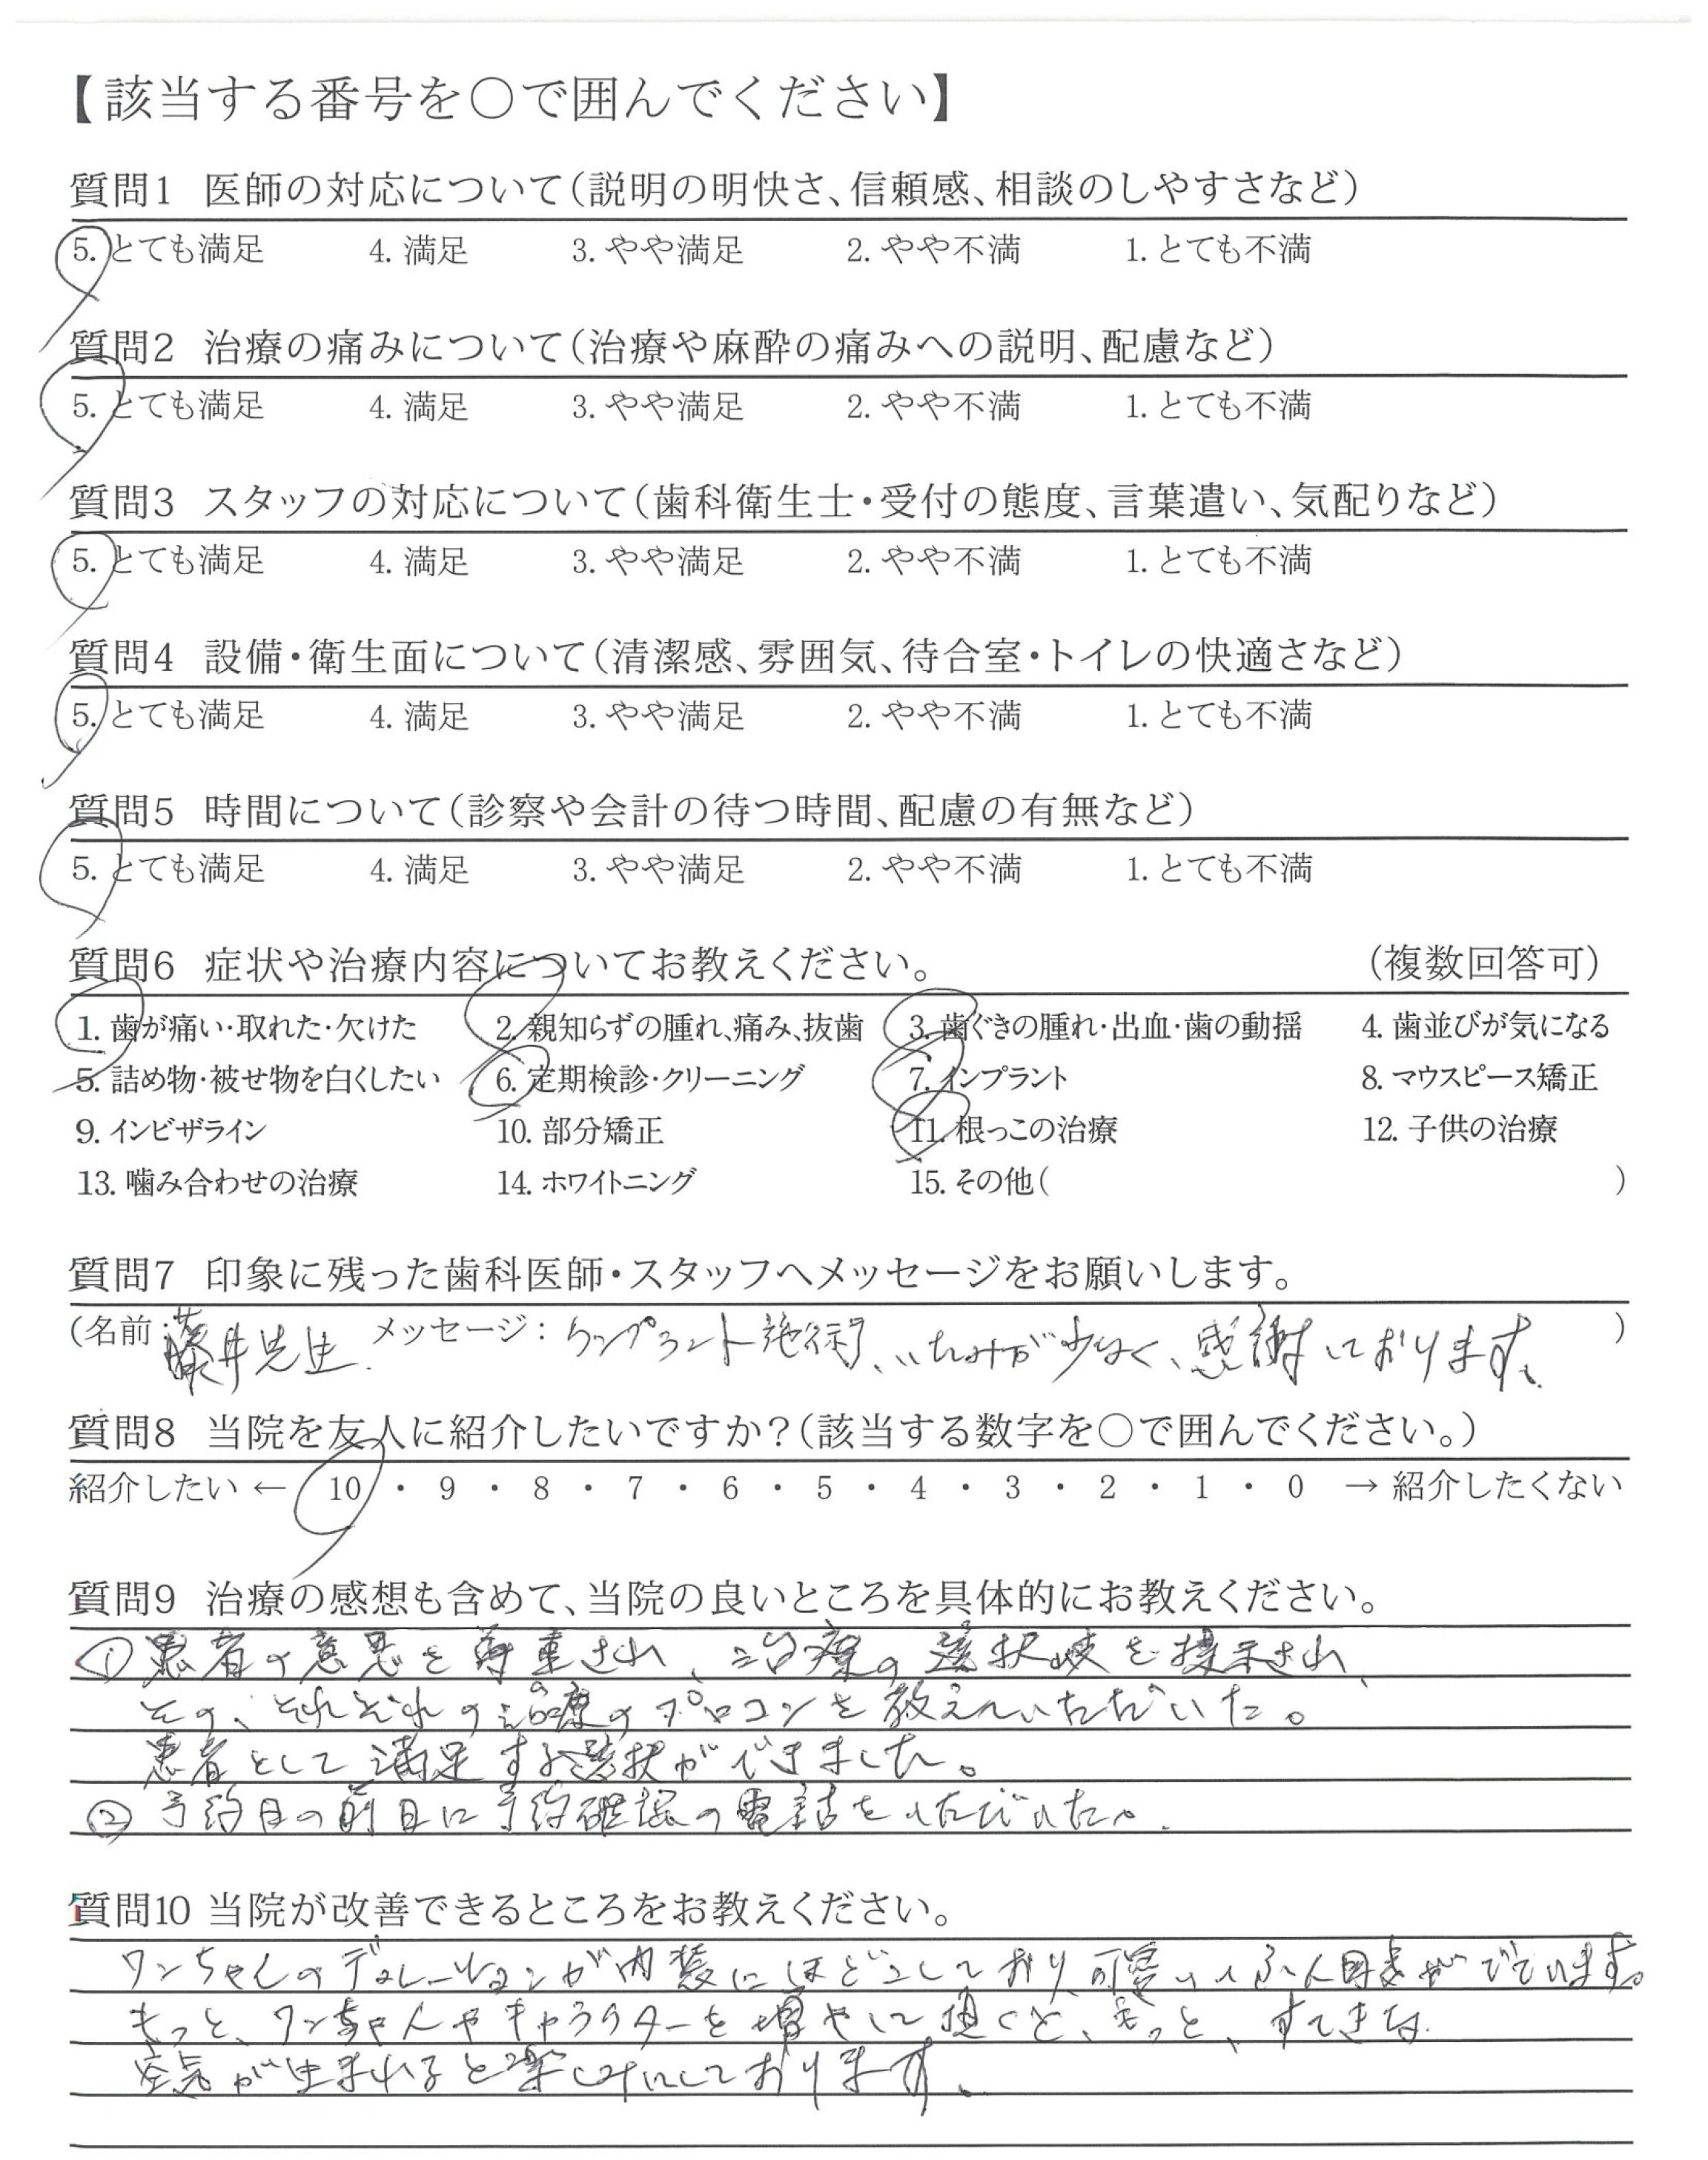 【該当する番号を○で囲んでください】
質問1 医師の対応について（説明の明快さ、信頼感、相談のしやすさなど）
5. とても満足 4. 満足 3. やや満足 2. やや不満 1. とても不満
質問2 治療の痛みについて（治療や麻酔の痛みへの説明、配慮など）
5. とても満足 4. 満足 3. やや満足 2. やや不満 1. とても不満
質問3 スタッフの対応について（歯科衛生士・受付の態度、言葉遣い、気配りなど）
5. とても満足 4. 満足 3. やや満足 2. やや不満 1. とても不満
質問4 設備・衛生面について（清潔感、雰囲気、待合室・トイレの快適さなど）
5. とても満足 4. 満足 3. やや満足 2. やや不満 1. とても不満
質問5 時間について（診察や会計の待つ時間、配慮の有無など）
5. とても満足 4. 満足 3. やや満足 2. やや不満 1. とても不満
質問6 症状や治療内容についてお教えください。 （複数回答可）
1. 歯が痛い・取れた・欠けた 2. 親知らずの腫れ、痛み、抜歯 3. 歯ぐきの腫れ・出血・歯の動揺 4. 歯並びが気になる
5. 詰め物・被せ物を白くしたい 6. 定期検診・クリーニング 7. インプラント 8. マウスピース矯正
9. インビザライン 10. 部分矯正 11. 根っこの治療 12. 子供の治療
13. 噛み合わせの治療 14. ホワイトニング 15. その他（ ）
質問7 印象に残った歯科医師・スタッフへメッセージをお願いします。
（名前：藤井先生 メッセージ：インプラント施術、いたみが少なく、感謝しております。）
質問8 当院を友人に紹介したいですか？（該当する数字を○で囲んでください。）
紹介したい ← 10 ・ 9 ・ 8 ・ 7 ・ 6 ・ 5 ・ 4 ・ 3 ・ 2 ・ 1 ・ 0 → 紹介したくない
質問9 治療の感想も含めて、当院の良いところを具体的にお教えください。
① 患者の意思を尊重され、治療の選択岐を提示され、
その、それぞれの治療のプロコンを教えていただいた。
患者として満足する選択ができました。
② 予約日の前日に予約確認の電話をいただいた。
質問10 当院が改善できるところをお教えください。
ワンちゃんのデコレーションが内装にほどこしており可愛いいふん囲気がでています。
もっと、ワンちゃんやキャラクターを増やして頂くと、もっと、すてきな
空気が生まれると楽しみにしております。